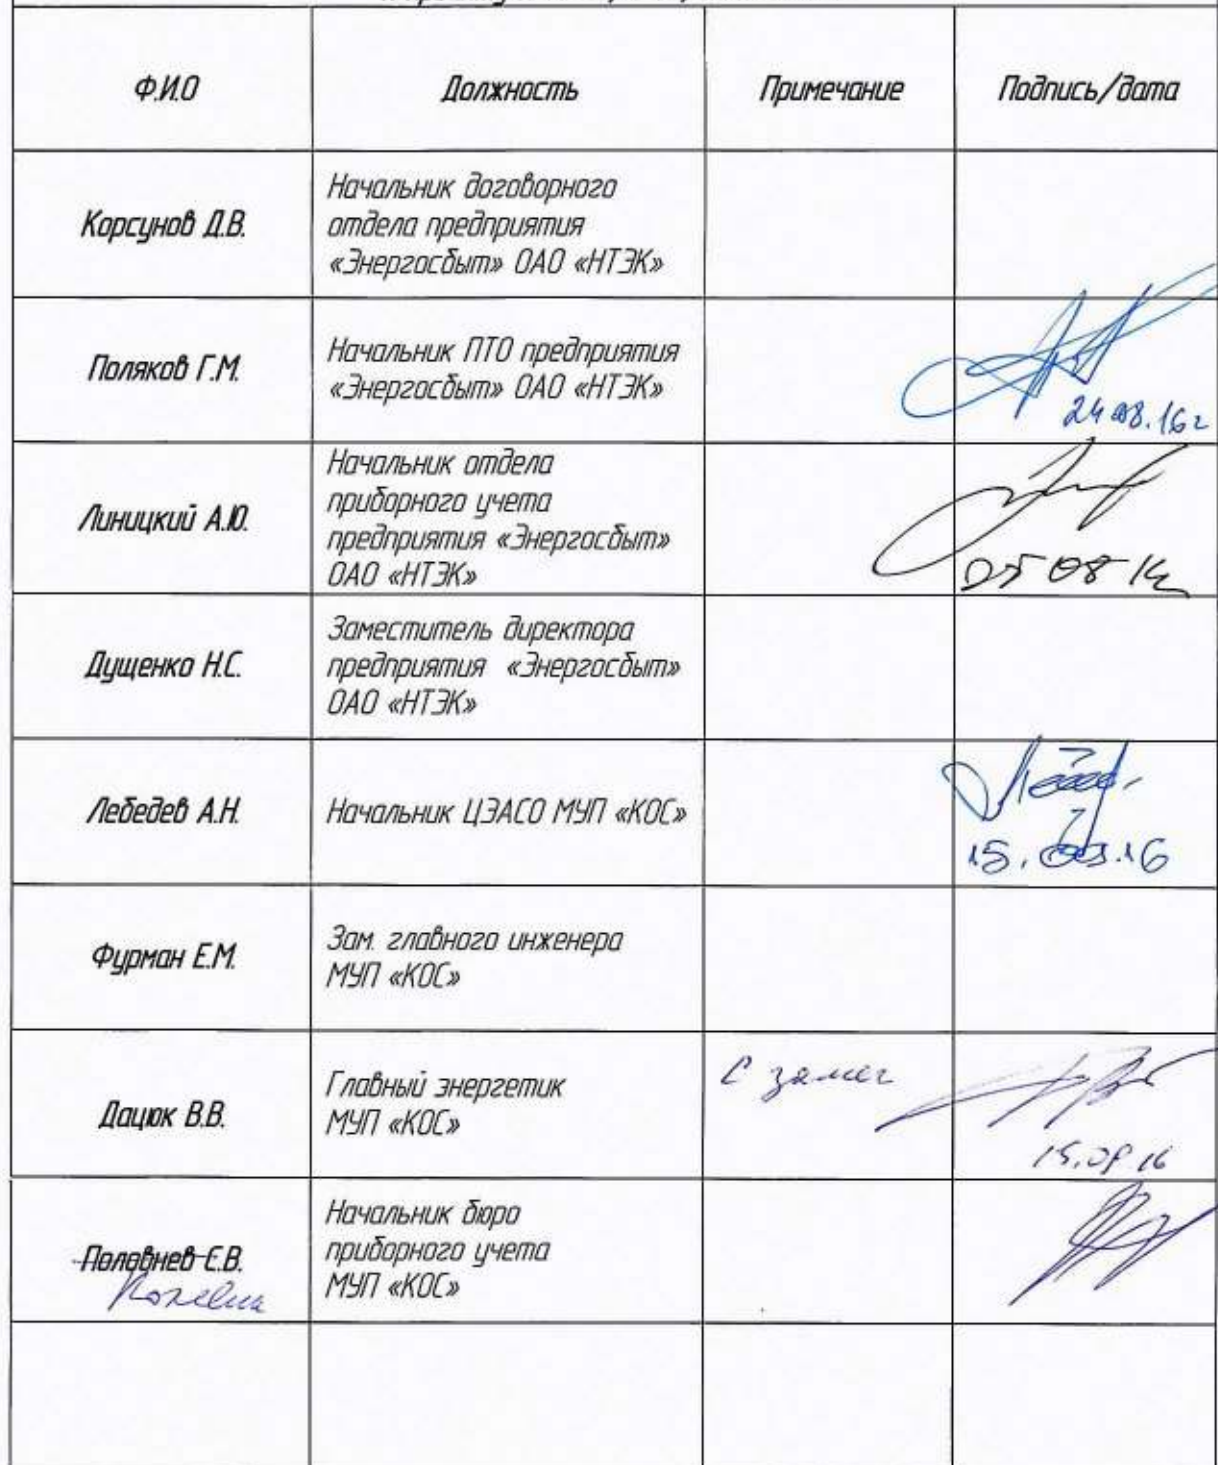 Ф.И.О
Должность
Примечание
Подпись/дата
Корсунов Д.В.
Начальник договорного
отдела предприятия
«Энергосбыт» ОАО «НТЭК»
Поляков Г.М.
Начальник ПТО предприятия
«Энергосбыт» ОАО «НТЭК»
24.08.16г
Линицкий А.Ю.
Начальник отдела
приборного учета
предприятия «Энергосбыт»
ОАО «НТЭК»
Дущенко Н.С.
Заместитель директора
предприятия «Энергосбыт»
ОАО «НТЭК»
Лебедев А.Н.
Начальник ЦЭАСО МУП «КОС»
Фурман Е.М.
Зам. главного инженера
МУП «КОС»
Дацюк В.В.
Главный энергетик
МУП «КОС»
С замеч
Половнев Е.В.
Начальник бюро
приборного учета
МУП «КОС»